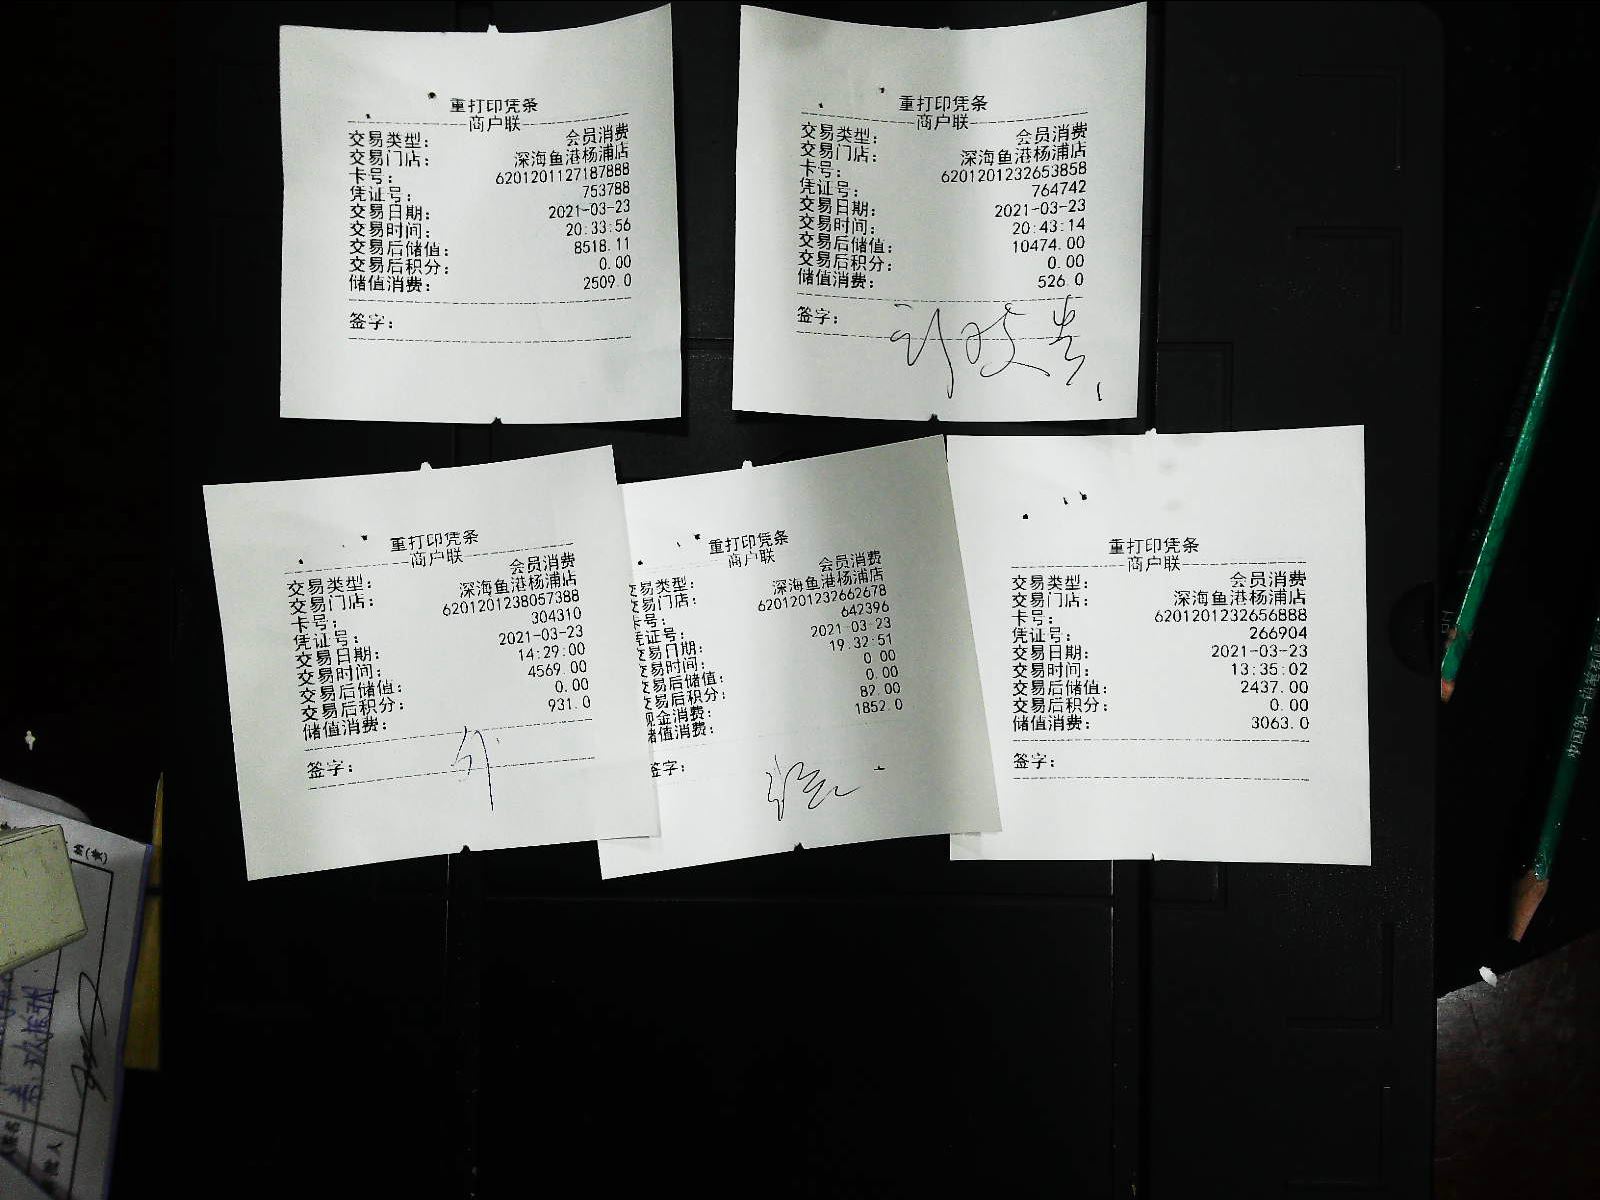 重打印凭条
商户联
交易类型： 会员消费
交易门店： 深海鱼港杨浦店
卡号： 6201201127187888
凭证号： 753788
交易日期： 2021-03-23
交易时间： 20:33:56
交易后储值： 8518.11
交易后积分： 0.00
储值消费： 2509.0
签字：
重打印凭条
商户联
交易类型： 会员消费
交易门店： 深海鱼港杨浦店
卡号： 6201201232653858
凭证号： 764742
交易日期： 2021-03-23
交易时间： 20:43:14
交易后储值： 10474.00
交易后积分： 0.00
储值消费： 526.0
签字：
重打印凭条
商户联
交易类型： 会员消费
交易门店： 深海鱼港杨浦店
卡号： 6201201238057388
凭证号： 304310
交易日期： 2021-03-23
交易时间： 14:29:00
交易后储值： 4569.00
交易后积分： 0.00
储值消费： 931.0
签字：
重打印凭条
商户联
交易类型： 会员消费
交易门店： 深海鱼港杨浦店
卡号： 6201201232662678
凭证号： 642396
交易日期： 2021-03-23
交易时间： 19:32:51
交易后储值： 0.00
交易后积分： 0.00
现金消费： 82.00
储值消费： 1852.0
签字：
重打印凭条
商户联
交易类型： 会员消费
交易门店： 深海鱼港杨浦店
卡号： 6201201232656888
凭证号： 266904
交易日期： 2021-03-23
交易时间： 13:35:02
交易后储值： 2437.00
交易后积分： 0.00
储值消费： 3063.0
签字：
中国第一铅笔